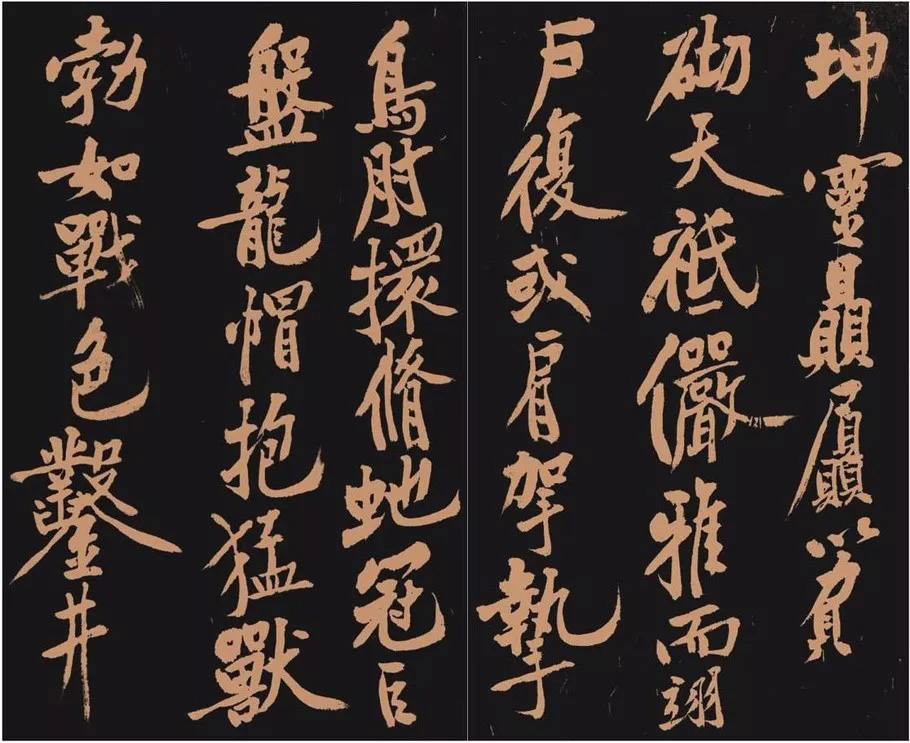 坤靈贔屭以負
砌天祇儼雅而翊
戶復或肩挐摯
鳥肘擐脩虵冠巨
盤龍帽抱猛獸
勃如戰色鑿井